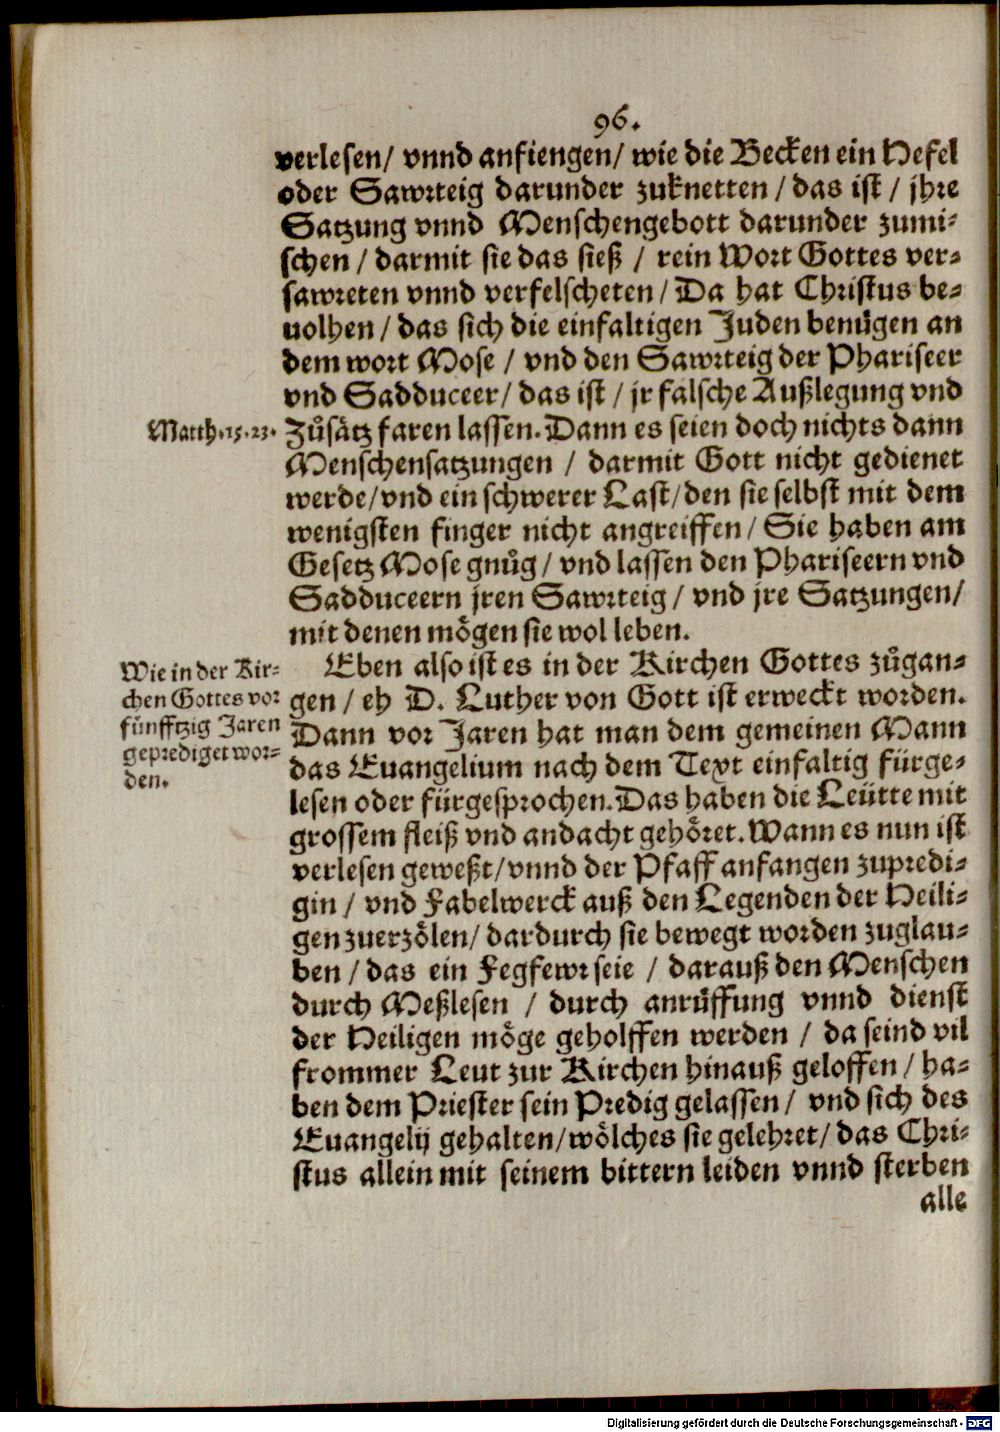 96.
verlesen/ vnnd anfiengen/ wie die Becken ein Hefel
oder Sawrteig darunder zuknetten / das ist / jhre
Satzung vnnd Menschengebott darunder zumi-
schen / darmit sie das sieß / rein Wort Gottes ver-
sawreten vnnd verfelscheten / Da hat Christus be-
uolhen / das sich die einfaltigen Juden benuͤgen an
dem wort Mose / vnd den Sawrteig der Phariseer
vnd Sadduceer/ das ist / jr falsche Außlegung vnd
Matth.15.23.
Zuͦsaͤtz faren lassen. Dann es seien doch nichts dann
Menschensatzungen / darmit Gott nicht gedienet
werde/vnd ein schwerer Last/den sie selbst mit dem
wenigsten finger nicht angreiffen/ Sie haben am
Gesetz Mose gnuͦg/ vnd lassen den Phariseern vnd
Sadduceern jren Sawrteig / vnd jre Satzungen/
mit denen moͤgen sie wol leben.
Wie in der Kir-
chen Gottes vor
fünfftzig Jaren
geprediget wor-
den.
Eben also ist es in der Kirchen Gottes zuͦgan-
gen / eh D. Luther von Gott ist erweckt worden.
Dann vor Jaren hat man dem gemeinen Mann
das Euangelium nach dem Text einfaltig fürge-
lesen oder fürgesprochen. Das haben die Leütte mit
grossem fleiß vnd andacht gehoͤret. Wann es nun ist
verlesen geweßt/vnnd der Pfaff anfangen zupredi-
gin / vnd Fabelwerck auß den Legenden der Heili-
gen zuerzoͤlen/ dardurch sie bewegt worden zuglau-
ben / das ein Fegfewr seie / darauß den Menschen
durch Meßlesen / durch anruͤffung vnnd dienst
der Heiligen moͤge geholffen werden / da seind vil
frommer Leut zur Kirchen hinauß geloffen / ha-
ben dem Priester sein Predig gelassen / vnd sich des
Euangelij gehalten/woͤlches sie gelehret/ das Chri-
stus allein mit seinem bittern leiden vnnd sterben
alle
Digitalisierung gefördert durch die Deutsche Forschungsgemeinschaft - DFG